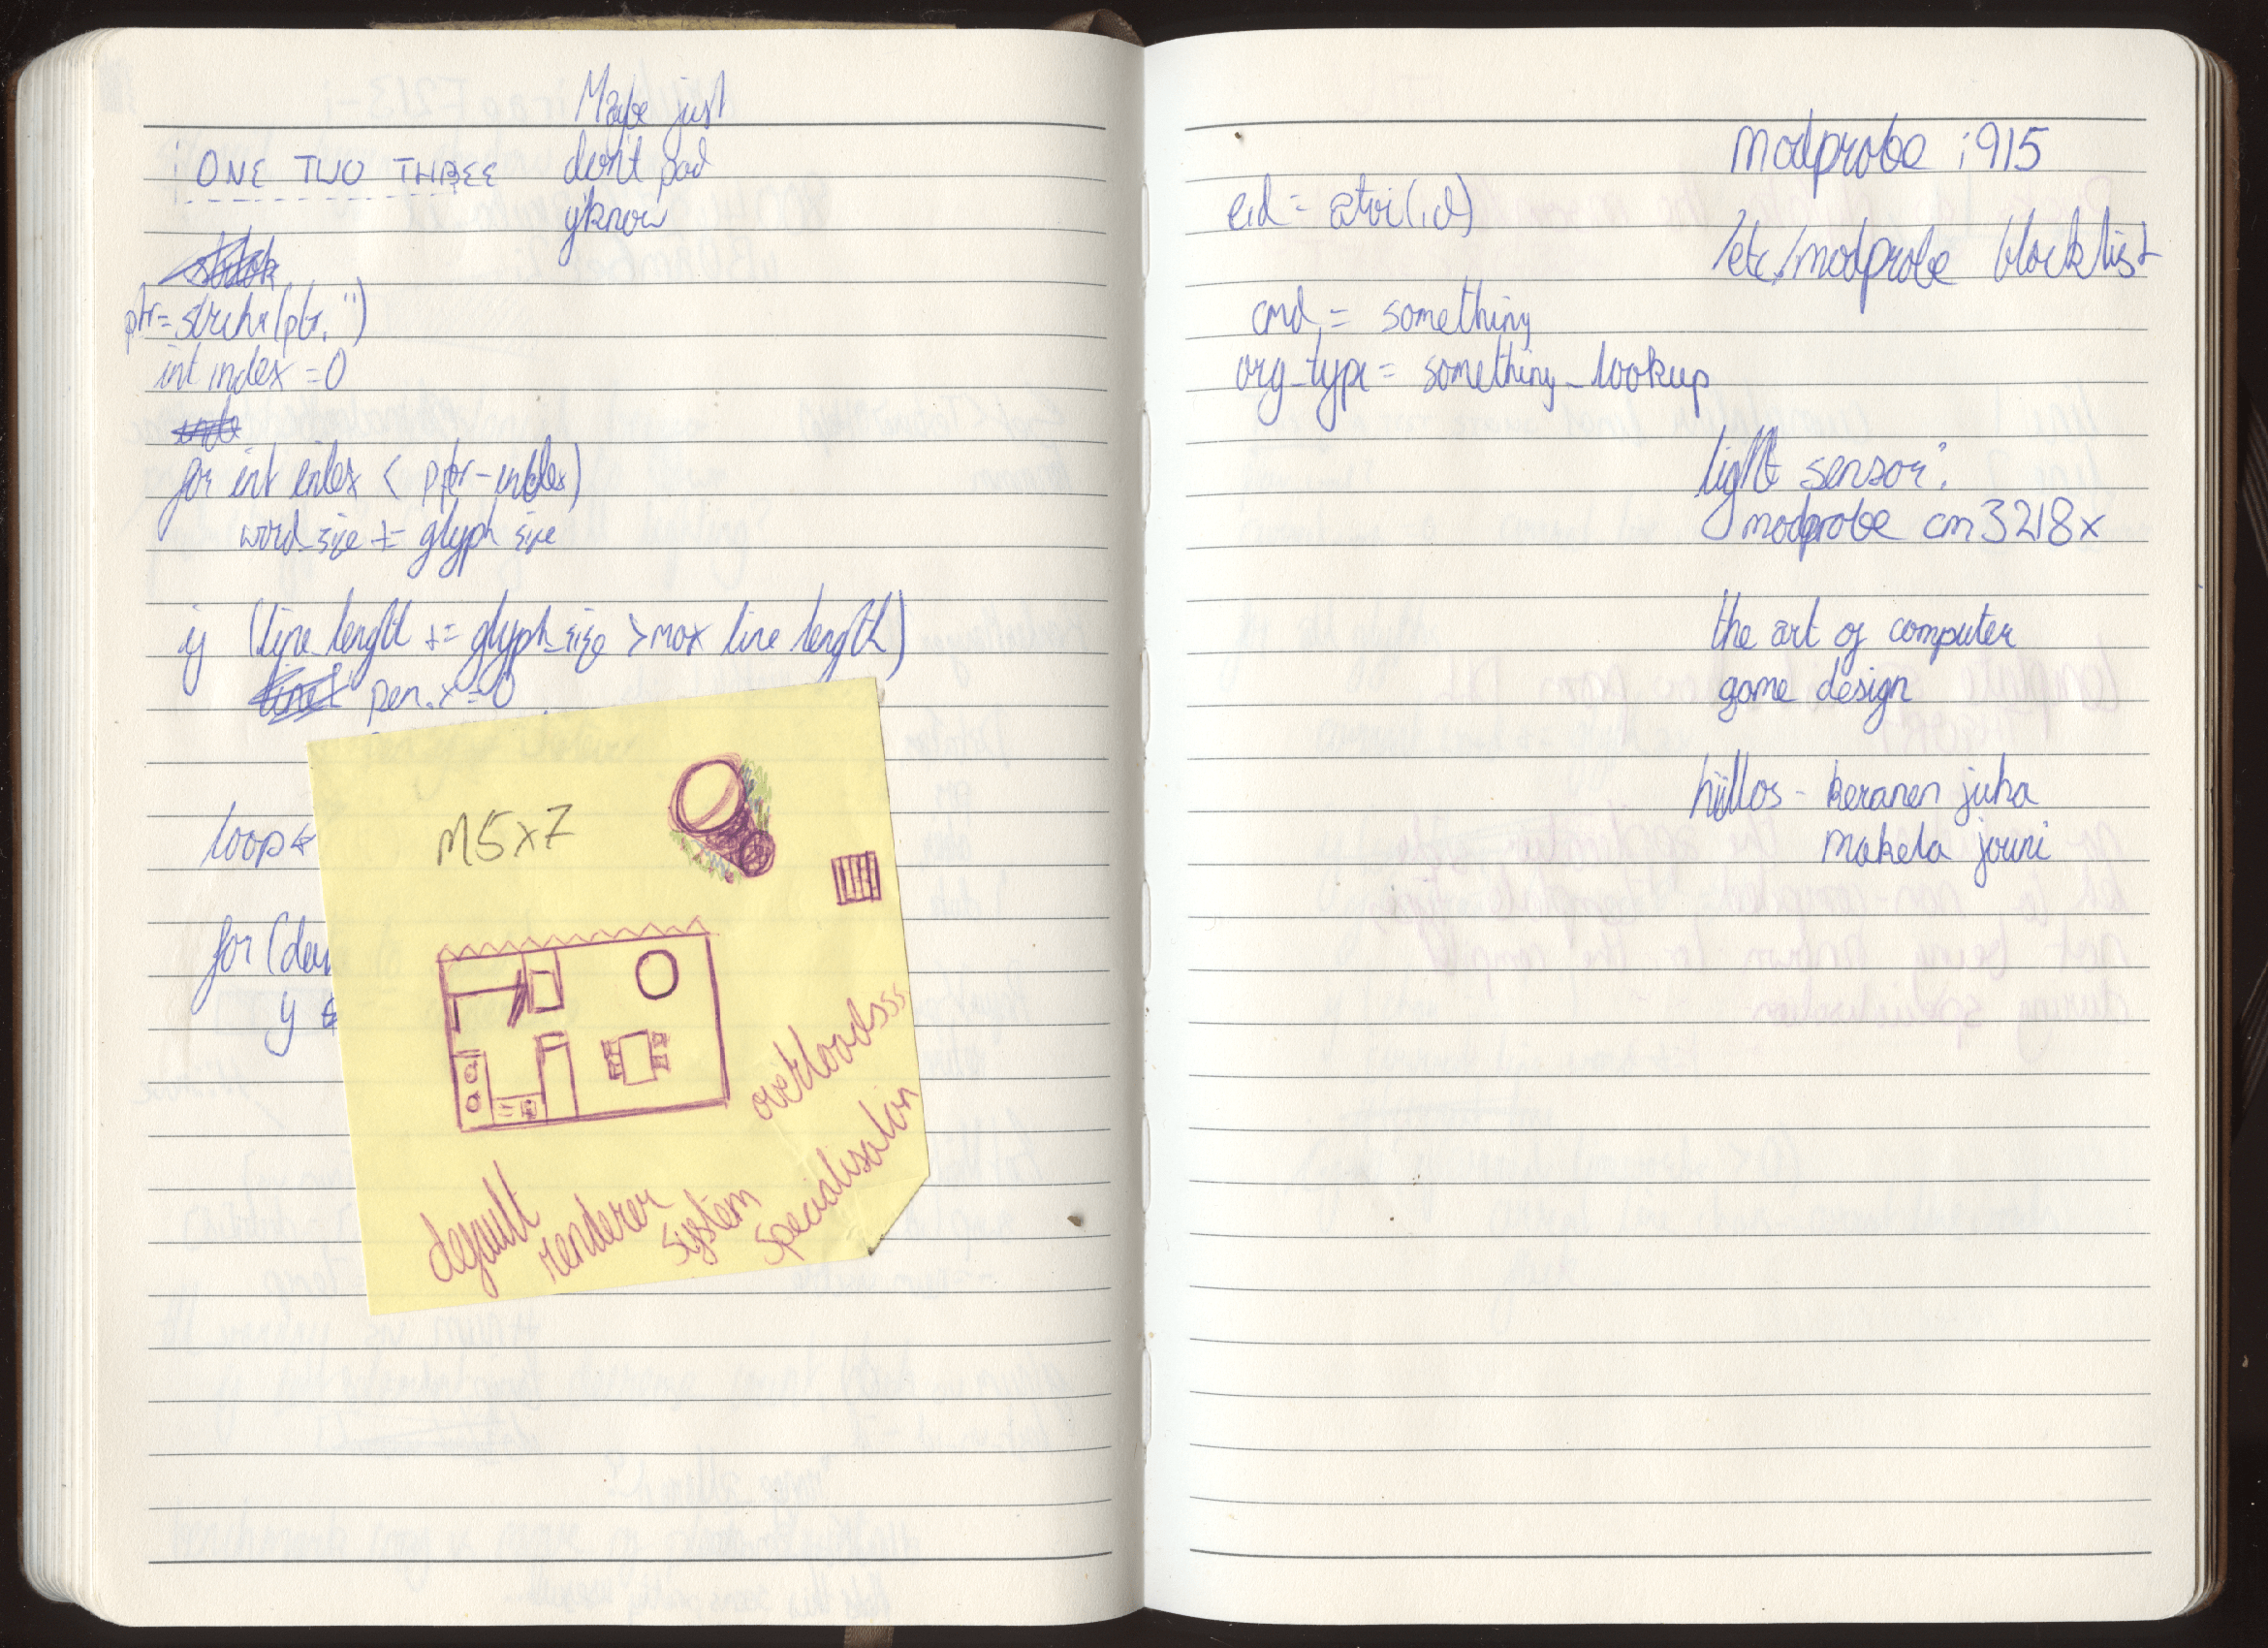 Maybe just
don't pad
y'know
ONE TWO THREE
ptr = strchr(ptr, ' ')
int index = 0
for int index < ptr - index)
word_size += glyph size
if (line_length += glyph_size > max line length)
pen.x = 0
loop
for (
y
M5x7
overloadsss
default
renderer
system
specialisation
modprobe i915
eid = atoi(id)
/etc/modprobe blocklist
cmd = something
org_type = something_lookup
light sensor:
modprobe cm3218x
the art of computer
game design
hiillos - keranen juha
makela jouni